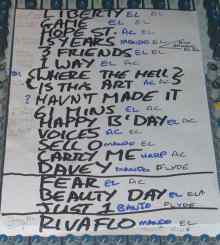 LIBERTY EL EL
GAME EL EL
HOPE ST. AC EL
15 YEARS MANDO EL
3 FRIENDS EL EL
1 WAY EL AC
(WHERE THE HELL?
(IS THIS ART AC AC
? HAVN'T MADE IT
GILLINS EL AC
HAPPY B'DAY EL AC
VOICES AC EL
SELL O MANDO EL
CARRY ME HARP AC
DAVEY MANDO CLYDE
FEAR EL AC
BEAUTY DAY EL EL
JUST 1 BANJO CLYDE
RIVAFLO MANDO EL